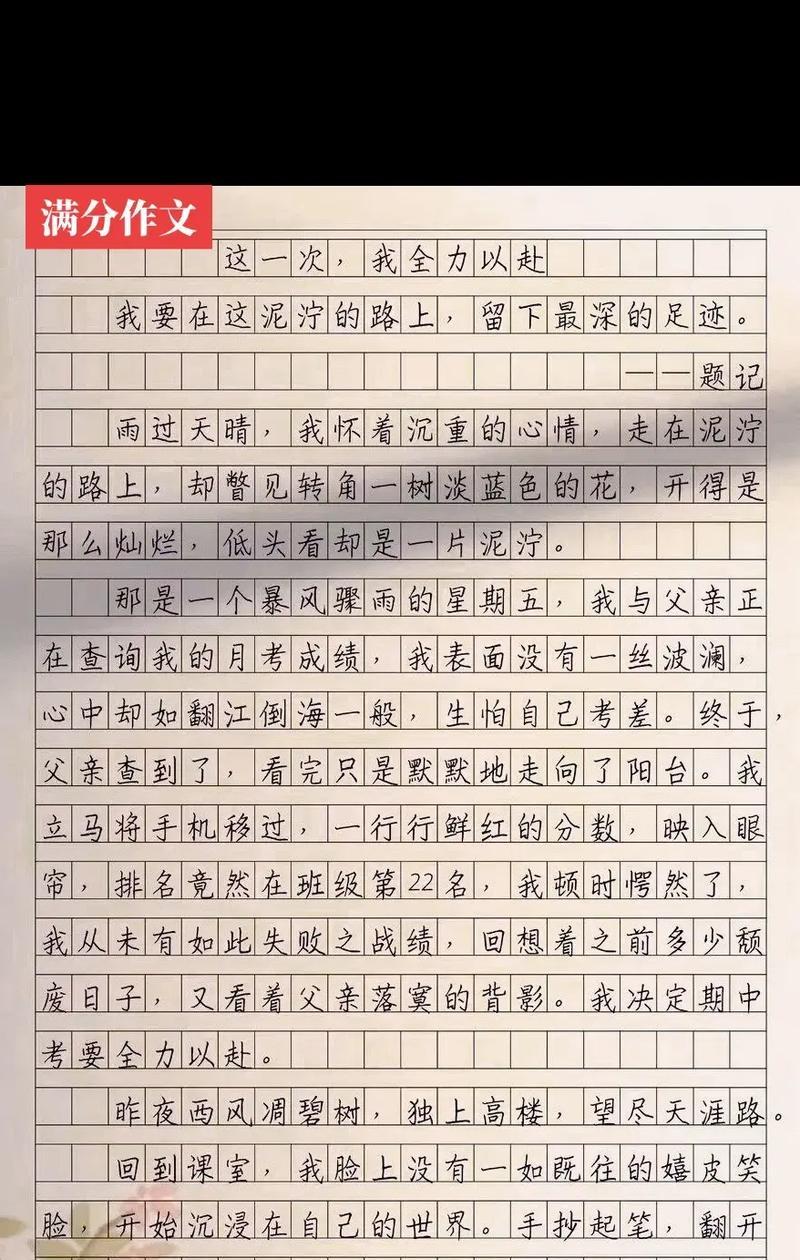 满分作文
这一次，我全力以赴
我要在这泥泞的路上，留下最深的足迹。
——题记
雨过天晴，我怀着沉重的心情，走在泥泞
的路上，却瞥见转角一树淡蓝色的花，开得是
那么灿烂，低头看却是一片泥泞。
那是一个暴风骤雨的星期五，我与父亲正
在查询我的月考成绩，我表面没有一丝波澜，
心中却如翻江倒海一般，生怕自己考差。终于，
父亲查到了，看完只是默默地走向了阳台。我
立马将手机移过，一行行鲜红的分数，映入眼
帘，排名竟然在班级第22名，我顿时愕然了，
我从未有如此失败之战绩，回想着之前多少颓
废日子，又看着父亲落寞的背影。我决定期中
考要全力以赴。
昨夜西风凋碧树，独上高楼，望尽天涯路。
回到课室，我脸上没有一如既往的嬉皮笑
脸，开始沉浸在自己的世界。手抄起笔，翻开